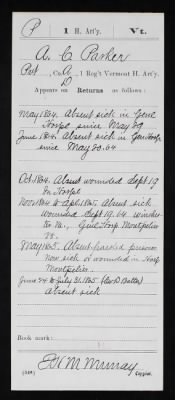 P | 1 H. Art'y. | Vt.
A. C. Parker
Pvt., Co. D, 1 Reg't Vermont H. Art'y.
Appears on Returns as follows:
May 1864. Absent sick in Genl
Hospl since May 20
June 1864. Absent sick in Gen Hospl
since May 20.64
Oct 1864. Absent wounded Sept 19
In Hospl
Nov 1864 to Apl 1865. Absent sick
wounded Sept 19.64
Genl Hosp Montpelier
Vt.
May 1865. Absent
now sick & wounded in Hosp
Montpelier
June to July 31.1865
Absent sick
Book mark:
E. W. M. Murray
Copyist.